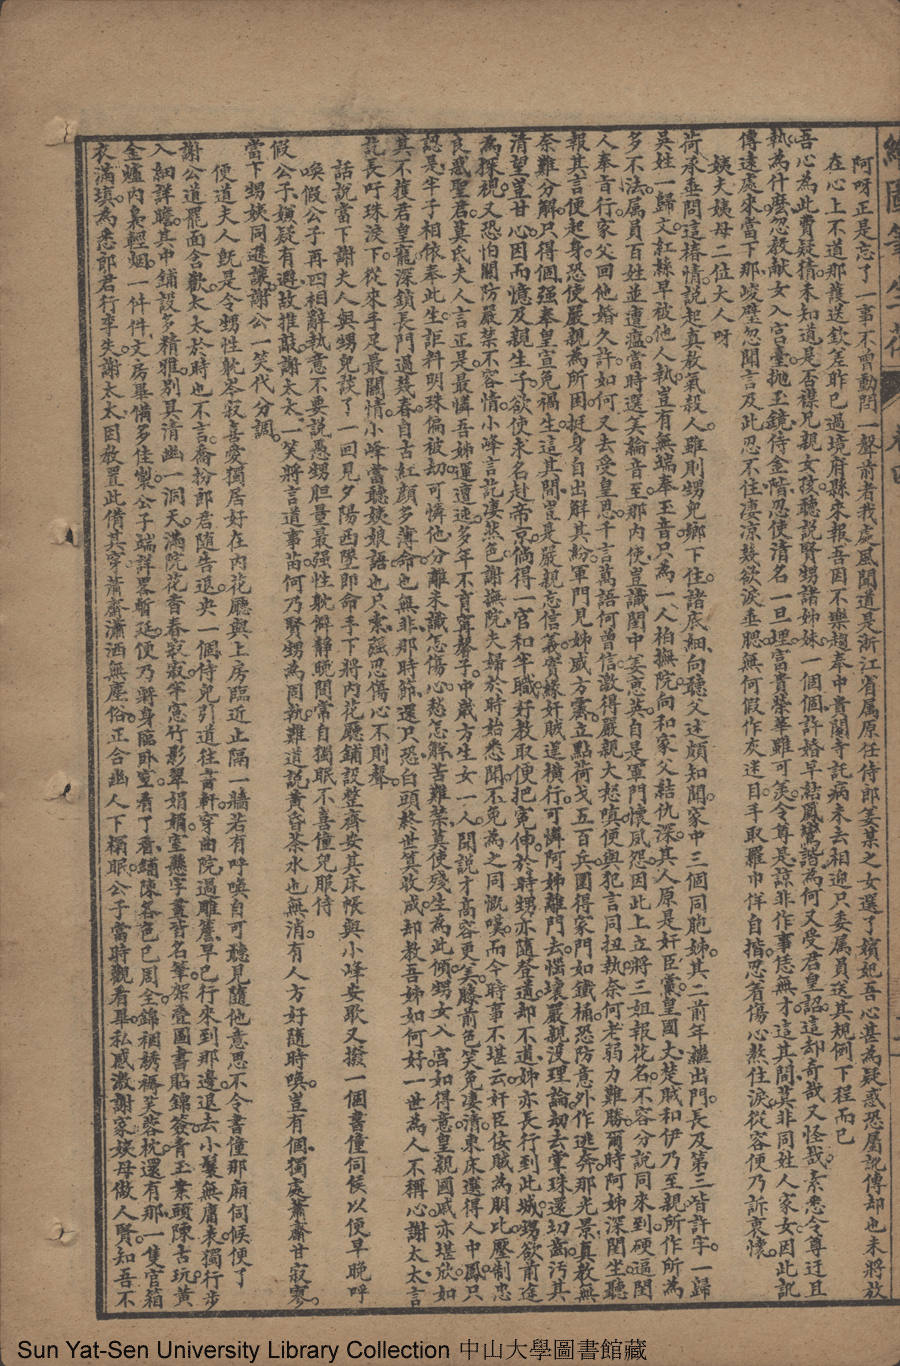 繪圖筆生花 卷四
阿呀正是忘了一事不曾動問一聲前者我處風聞道是浙江省属原任侍郎姜某之女選了嬪妃吾心甚為疑惑恐屬訛傳却也未將放
在心上不道那護送欽差昨已過境府縣來報吾因不樂趨奉中貴閹寺託病未去相迎只委属員送其規例下程而已
吾心為此費疑猜未知道是否襟兄親女孩聽説賢甥諸姊妹一個個許婚早結鳳鸞諧為何又受君皇詔這却奇哉又怪哉素悉令尊迂且
執為什麼忽發献女入宮臺拋玉鏡侍金階忍使清名一旦埋富貴榮華雖可羡令尊是諒非作事恁無才這其間莫非同姓人家女因此訛
傳遠處來當下那峻璧忽聞言及此忍不住凄凉幾欲淚垂腮無何假作灰迷目手取羅巾佯自揩忍着傷心熬住淚從容便乃訴衷懷
姨夫姨母二位大人呀
荷承垂問這椿情説起真教氣殺人雖則甥兒鄉下住諸底細向聽父述頗知聞家中三個同胞姊其二前年繼出門長及第三皆許字一歸
吳姓一歸文紅絲早被他人執豈有無端奉玉音只為一人柏撫院向和家父結仇深其人原是奸臣黨皇國丈楚賊和伊乃至親所作所為
多不法属員百姓並遭瘟當時選美綸音至那內使豈識閨中美惡英自是軍門懷夙怨因此上立將三姐報花名不容分説同來到硬逼閨
人奉旨行家父回他婚久許如何又去受皇恩千言萬語何曾信激得嚴親大怒嗔便與犯言同扭執奈何老弱力難勝爾時阿姊深閨坐聽
報其言便起身恐使嚴親為所困挺身自出解其紛軍門見姊威方震立點荷戈五百兵圍得家門如鐵桶恐防意外作逃奔那光景真教無
奈難分解只得個强奉皇宣免禍生這其間豈是嚴親忘信義實緣奸賊逞橫行可憐阿姊離門去惱壞嚴親没理論刼去掌珠還切齒污其
清望豈甘心因而憶及親生子欲使求名赴帝京倘得一官和半職好教取便把寃伸於時甥亦隨登道却不道姊亦長行到此城甥欲前途
為探視又恐怕關防嚴禁不容情小峰言訖凄然色謝撫院夫婦於時始悉聞不免為之同慨嘆而今時事不堪云奸臣佞賊為朋比壓制忠
良惑聖君莫氏夫人言正是最憐吾姊運遭迍多年不育寗馨子中歲方生女一人聞説才高容更美膝前色笑免凄清東床選得人中鳳只
認是半子相依奉此生詎料明珠偏被刼可憐他分離未識怎傷心愁怎解苦難禁莫使殘生為此傾甥女入宮如得意皇親國戚亦堪欣如
其不獲君皇寵深鎖長門過幾春自古紅顏多薄命也無非那時節還只恐白頭終世莫收成却教吾姊如何好一世為人不稱心謝太太言
訖長吁珠淚下從來手足最關情小峰當聽姨娘語也只索強忍傷心不則聲
話説當下謝夫人與甥兒談了一回見夕陽西墜即命手下將內花廳鋪設整齊安其床帳與小峰安歇又撥一個書僮伺候以便早晚呼
喚假公子再四相辭執意不要説愚甥胆量最强性躭僻靜晚間常自獨眠不喜僮兒服侍
假公子嫌疑有避故推敲謝太太一笑將言道事苗何乃賢甥為固執難道説黄昏茶水也無消有人方好隨時喚豈有個獨處蕭齋甘寂寥
當下甥姨同遜讓謝公一笑代分調
便道夫人既是令甥性躭岑寂喜愛獨居好在內花廳與上房臨近止隔一牆若有呼喚自可聽見隨他意思不令書僮那廂伺候便了
謝公道罷面含歡太太於時也不言喬扮郎君隨告退央一個侍兒引道往書軒穿曲院過雕簷早已行來到那邊退去小鬟無庸表獨行步
入細詳瞻其中鋪設多精雅别具清幽一洞天滿院花香春寂寂半窓竹影翠娟娟室懸字畫皆名筆架疊圖書貼錦簽青玉案頭陳古玩黄
金爐內裊輕烟一件件文房畢備多佳製公子端詳畧暫延便乃將身臨卧室看了看鋪陳各色已周全錦裀綉褥芙蓉枕還有那一隻官箱
衣滿填為悉郎君行李失謝太太因敖置此借其穿蕭齋瀟洒無塵俗正合幽人下榻眠公子當時觀看畢私感激謝家姨母做人賢知吾不
Sun Yat-Sen University Library Collection 中山大學圖書館藏